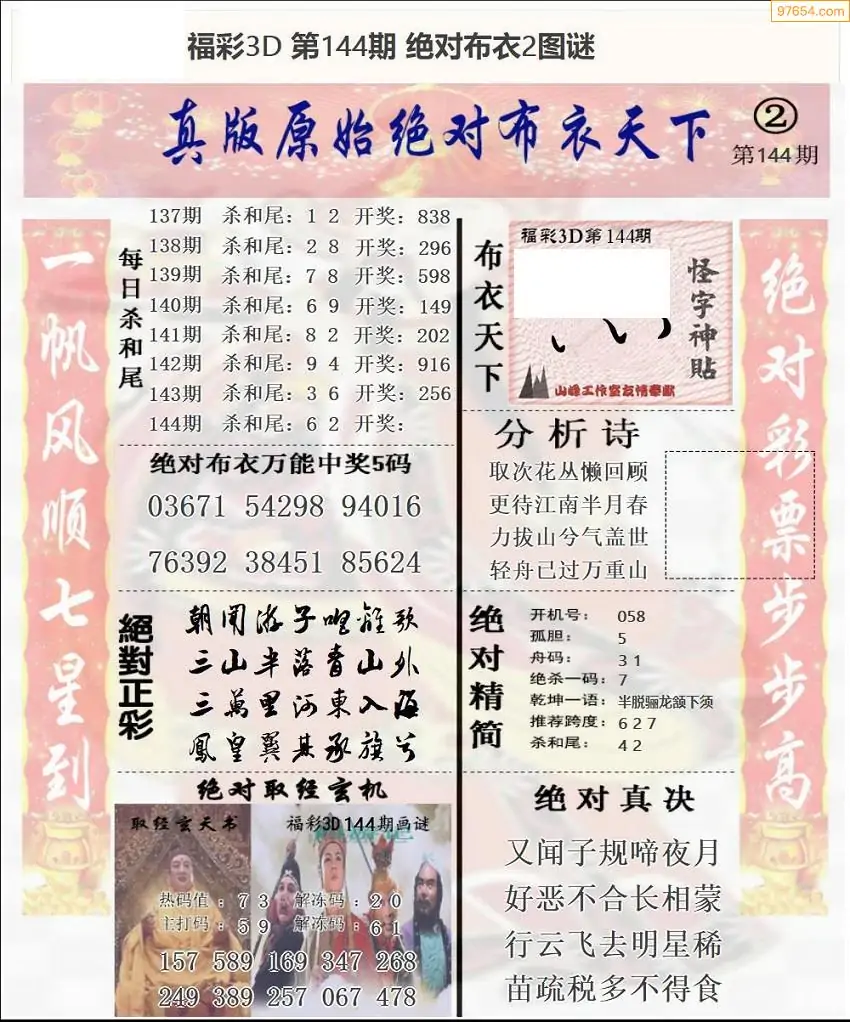 97654.com
福彩3D 第144期 绝对布衣2图谜
真版原始绝对布衣天下
②
第144期
一帆风顺七星到
每日杀和尾
137期 杀和尾：1 2 开奖：838
138期 杀和尾：2 8 开奖：296
139期 杀和尾：7 8 开奖：598
140期 杀和尾：6 9 开奖：149
141期 杀和尾：8 2 开奖：202
142期 杀和尾：9 4 开奖：916
143期 杀和尾：3 6 开奖：256
144期 杀和尾：6 2 开奖：
绝对布衣万能中奖5码
03671 54298 94016
76392 38451 85624
絕對正彩
朝闻游子唱離歌
三山半落青山外
三萬里河東入海
鳳皇翼其承旗兮
绝对取经玄机
取经玄天书
福彩3D144期画谜
热码值：7 3 解冻码：2 0
主打码：5 9 解冻码：6 1
157 589 169 347 268
249 389 257 067 478
布衣天下
福彩3D第144期
怪字神贴
山峰工作室友情奉献
分析诗
取次花丛懒回顾
更待江南半月春
力拔山兮气盖世
轻舟已过万重山
绝对精简
开机号： 058
孤胆： 5
舟码： 3 1
绝杀一码：7
乾坤一语：半脱骊龙颔下须
推荐跨度：6 2 7
杀和尾： 4 2
绝对真决
又闻子规啼夜月
好恶不合长相蒙
行云飞去明星稀
苗疏税多不得食
绝对彩票步步高